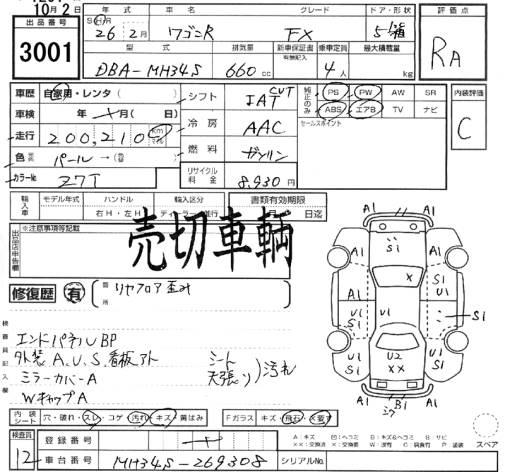 10月2日
出品番号 3001
年式 車名 グレード ドア・形状 評価点
S H R 26 年 2 月 ワゴンR FX 5 箱 RA
型式 排気量 新車保証書 有無記入 乗車定員 最大積載量
DBA-MH34S 660 cc 4 人 kg
車歴 自家用・レンタ シフト IAT CVT 純正のみ PS PW AW SR 内装評価
車検 年 月( 日) 冷房 AAC ABS エアB TV ナビ C
走行 200,210 Km 燃料 ガソリン セールスポイント
色 パール→
カラーNo Z7T リサイクル料金 8,930 円
輸入車 モデル年式 ハンドル 輸入区分 書類有効期限
右H・左H ディーラー・並行 月 日迄
出品店申告欄 ※注意事項等記載
売切車輌
修復歴 有 箇所 リヤフロア歪み
検査員記入欄
エンドパネルBP
外装 A.U.S.看板アト シート 天張り 汚れ
ミラーカバーA
WキャップA
A1 A1
A1 S1 A1
X
U1 S1 U1 S1
U1 S1 U2 XX U1 S1
A1 B1 A1
内装シート 穴・破れ・スレ・コゲ・汚れ・キズ・黄ばみ Fガラス キズ・飛石・
検査員 12 登録番号
車台番号 MH34S-269308 シリアルNo.
スペア